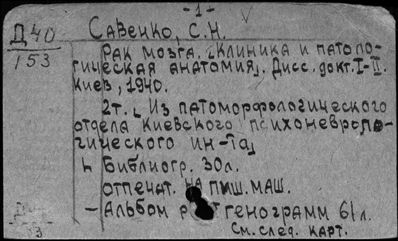 -1-
Д40
153
Савенко, С.Н.
Рак мозга. [Клиника и патоло-
гическая анатомия]. Дисс. докт. I-II.
Киев, 1940.
2т. [Из патоморфологического
отдела Киевского психоневроло-
гического ин-та]
Библиогр. 30л.
отпечат. на пиш. маш.
-Альбом р тгенограмм 61л.
См. след. карт.